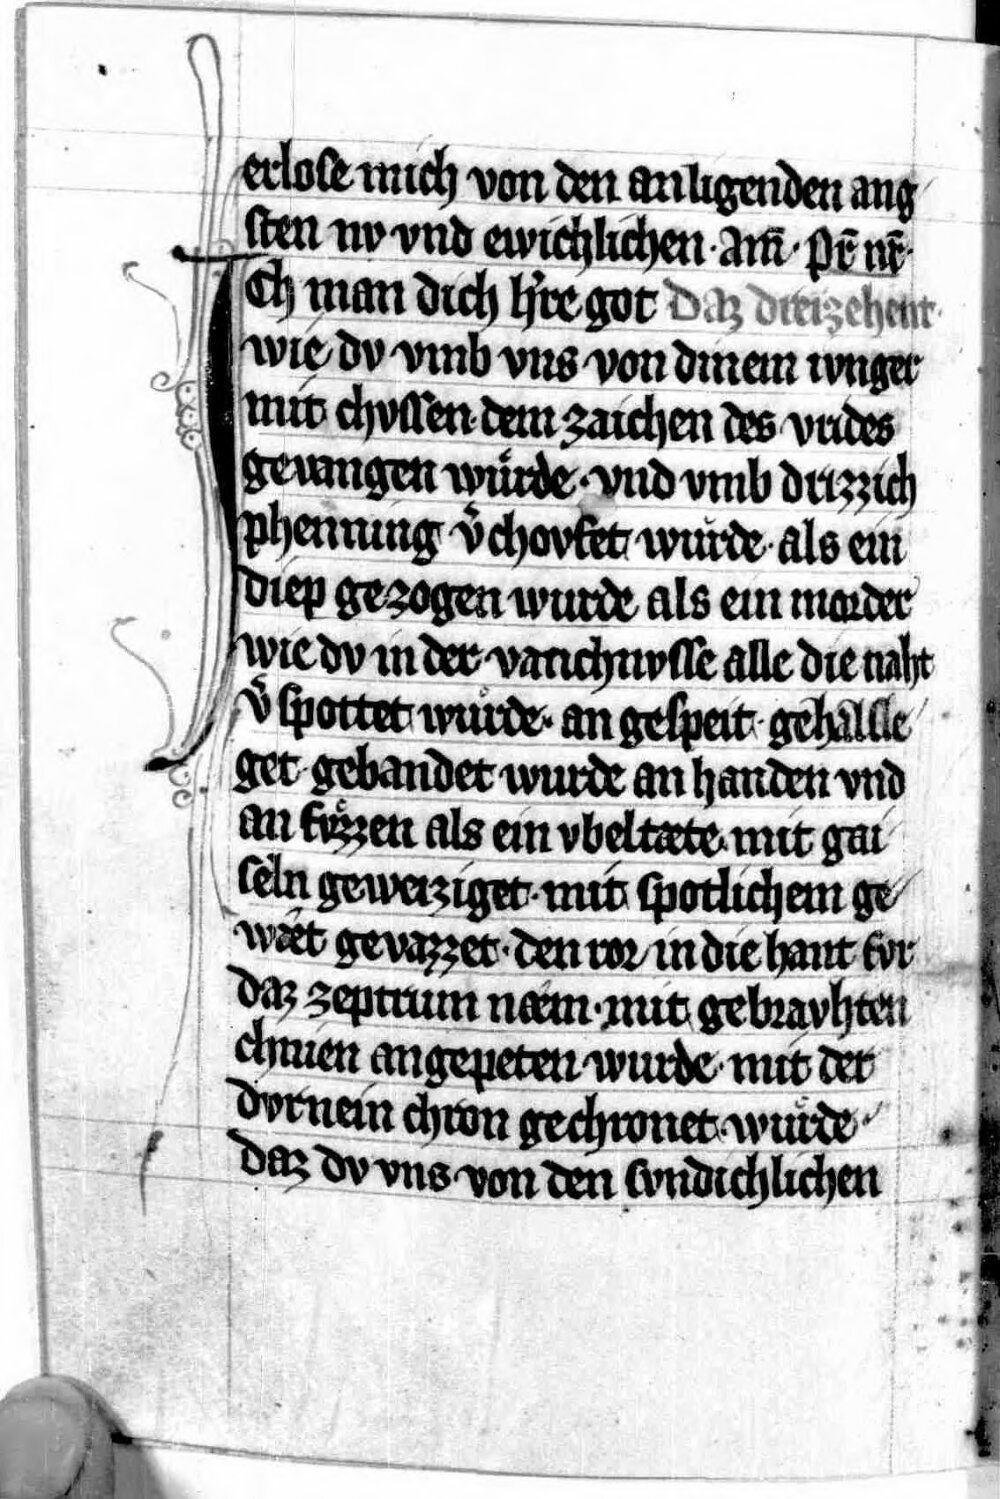 erlose mich von den anligenden ang
sten nv vnd ewichlichen · Am̄ · Pr̄ nr̄ ·
Ich man dich h̾re got Daz dreizehent ·
wie dv vmb vns von dinem ivnger
mit chvssen dem zaichen des vrides
gevangen wuͤrde · vnd vmb drizzich
phenning v̾chovfet wuͤrde · als ein
diep gezogen wurde als ein morder
wie dv in der vanchnvsse alle die naht
v̾spottet wuͤrde · an gespeit · gehalsle
get · gebandet wurde an handen vnd
an fvͤzzen als ein vbeltæte · mit gai
seln geweiziget · mit spotlichem ge
wæt gevazzet · den ror in die hant fvr
daz zeptrum næm · mit gebravhten
chnien angepeten wurde · mit der
dvrnein chron gechronet wuͤrde ·
daz dv vns von den svndichlichen